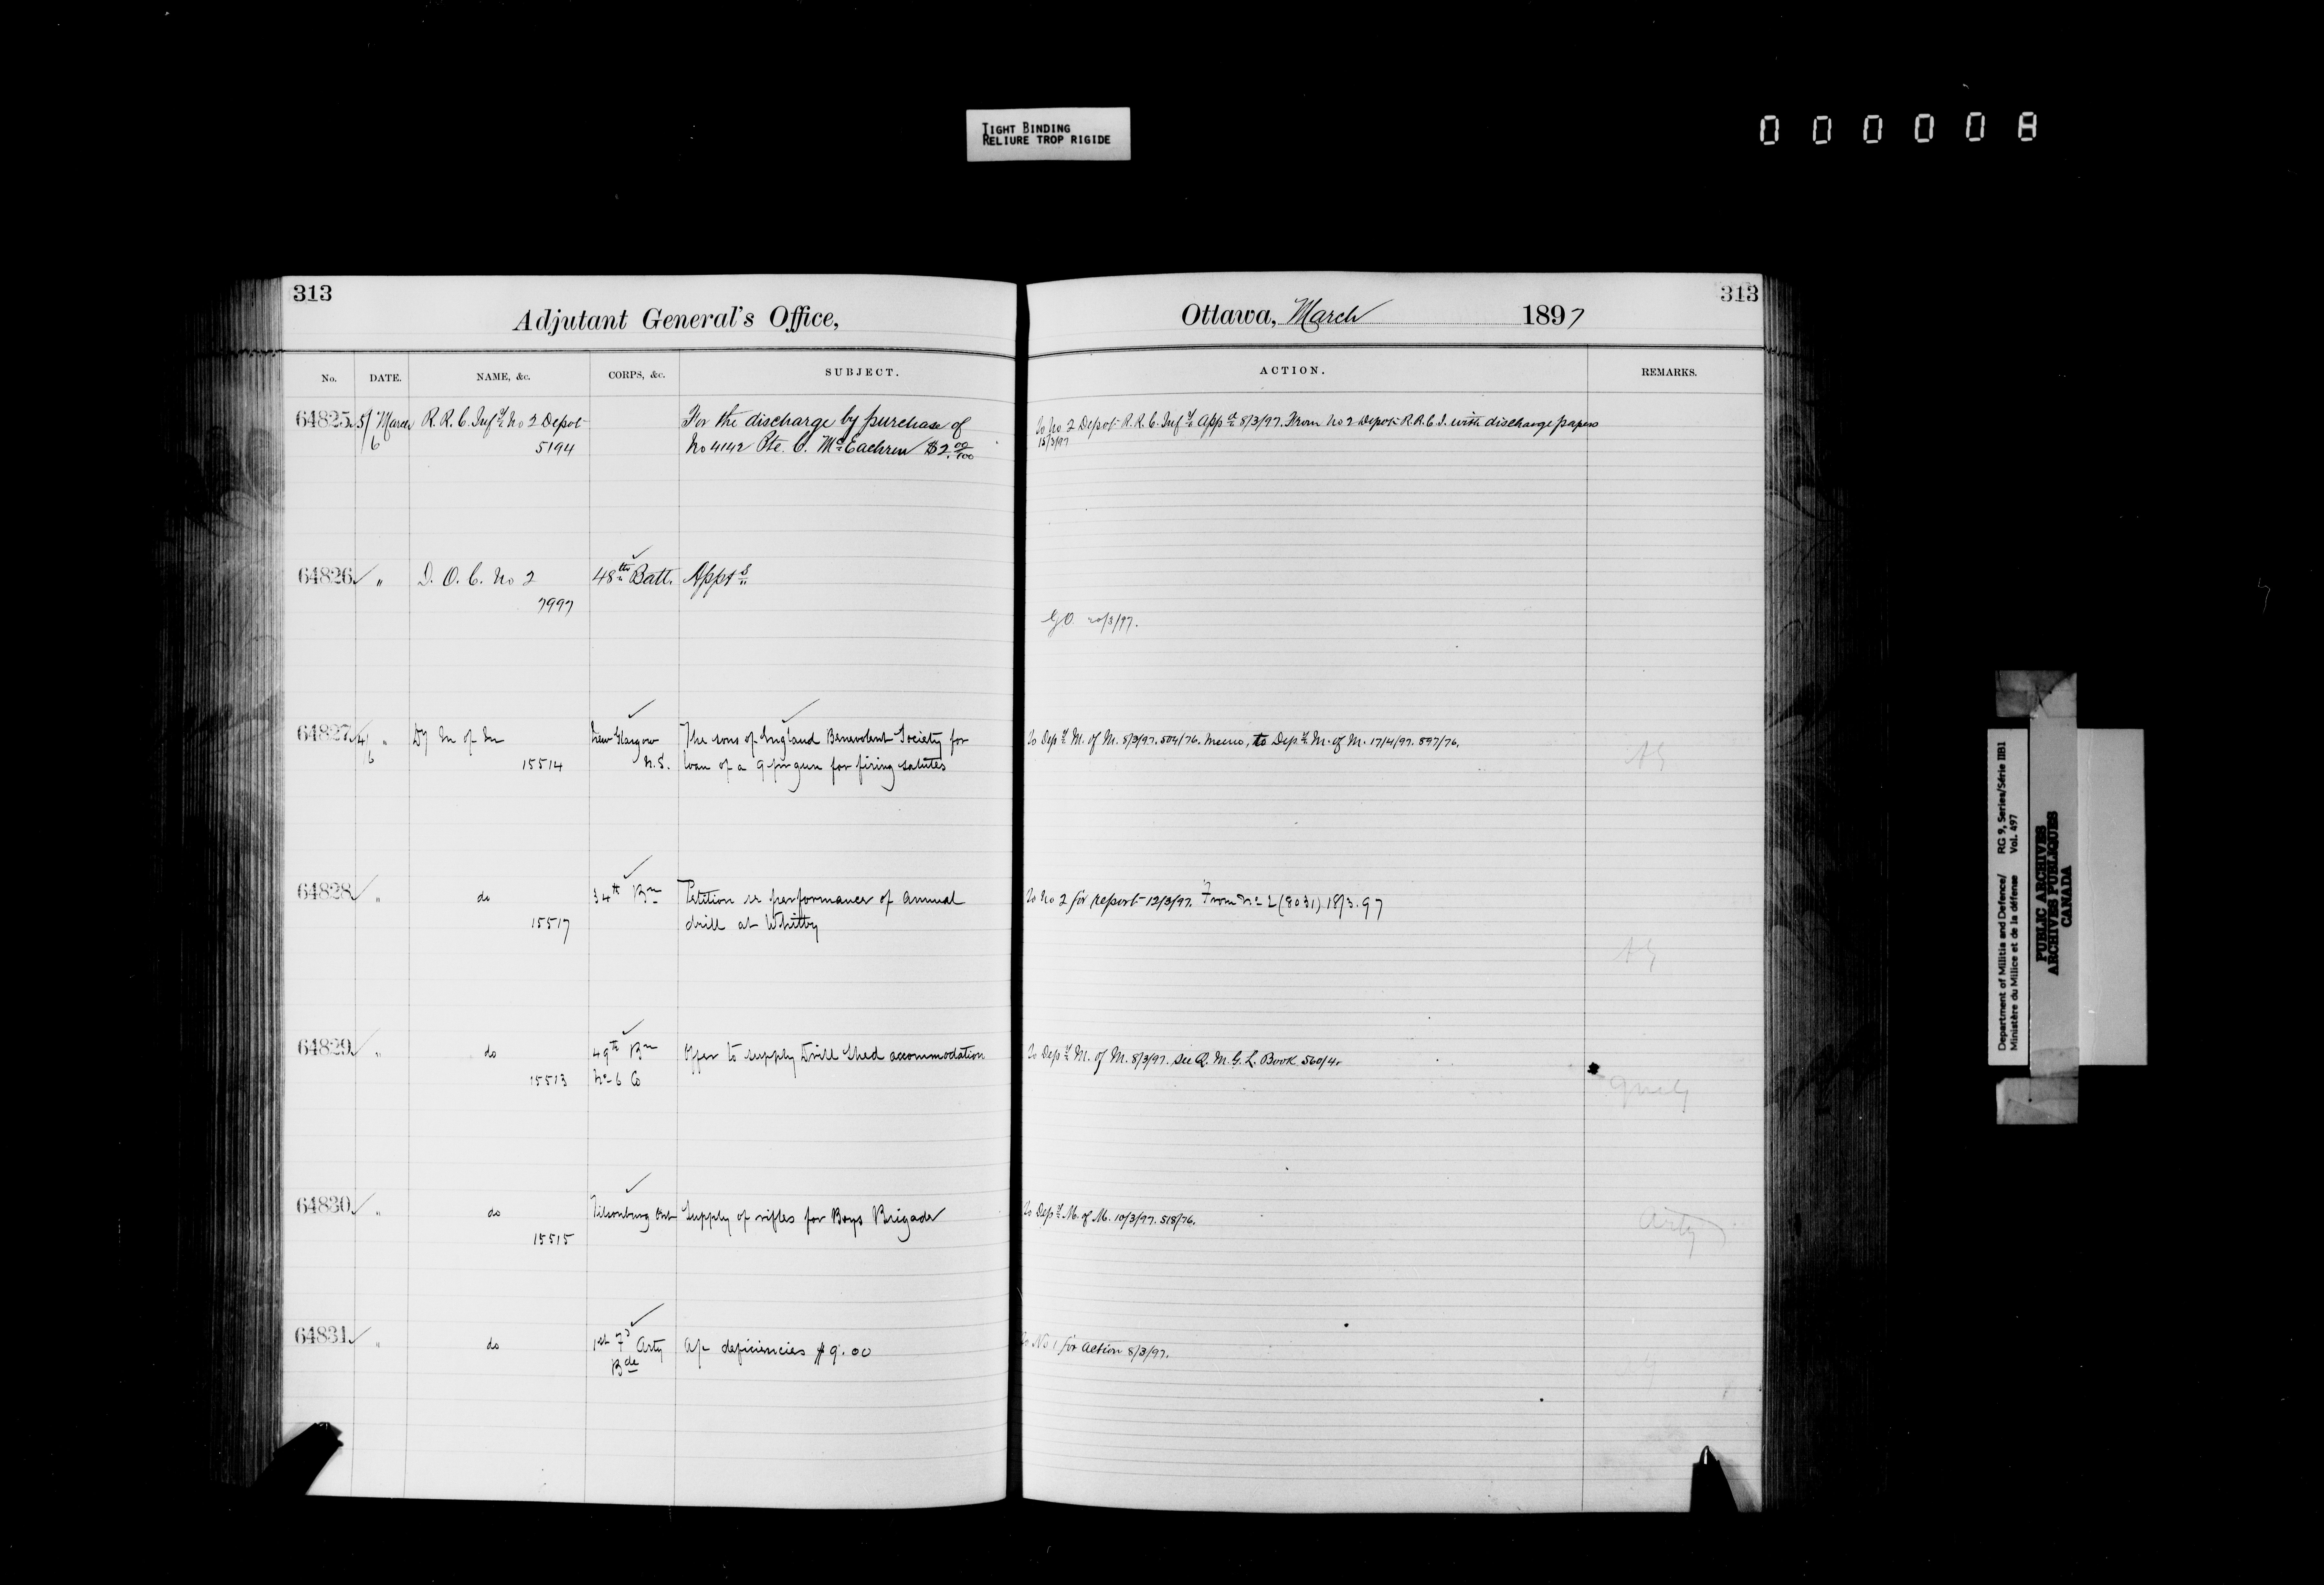 TIGHT BINDING
RELIURE TROP RIGIDE
0 0 0 0 0 8
313
Adjutant General's Office,
No. DATE. NAME, &c. CORPS, &c. SUBJECT.
64825 5/6 March R. R. C. Infy No 2 Depot For the discharge by purchase of
5194 No 4142 Pte. C. McEachren $2.00/100
64826 " D. O. C. No 2 48th Batt. Appts
7997
64827 4/6 " Dy M of M New Glasgow The sons of England Benevolent Society for
15514 N.S. loan of a 9 pr gun for firing salutes
64828 " do 34th Bn Petition re performance of annual
15517 drill at Whitby
64829 " do 49th Bn Offer to supply Drill Shed accommodation
15513 No 6 Co
64830 " do Tilsonburg Ont Supply of rifles for Boys Brigade
15515
64831 " do 1st Arty A/c deficiencies $9.00
Bde
313
Ottawa, March 1897
ACTION. REMARKS.
To No 2 Depot R. R. C. Infy Appd 8/3/97. From No 2 Depot R.R.C.I. with discharge papers
15/3/97
GO 20/3/97.
To Depy M. of M. 8/3/97. 504/76. Memo, to Depy M. of M. 17/4/97. 597/76.
AG
To No 2 for report 12/3/97. From No 2 (8031) 18/3.97
AG
To Depy M. of M. 8/3/97. See Q. M. G. L. Book 560/4.
QMG
To Depy M. of M. 10/3/97. 518/76.
Arty
To No 1 for action 8/3/97.
Department of Militia and Defence/ RG 9, Series/Série IIB1
Ministère du Milice et de la défense Vol. 497
PUBLIC ARCHIVES
ARCHIVES PUBLIQUES
CANADA